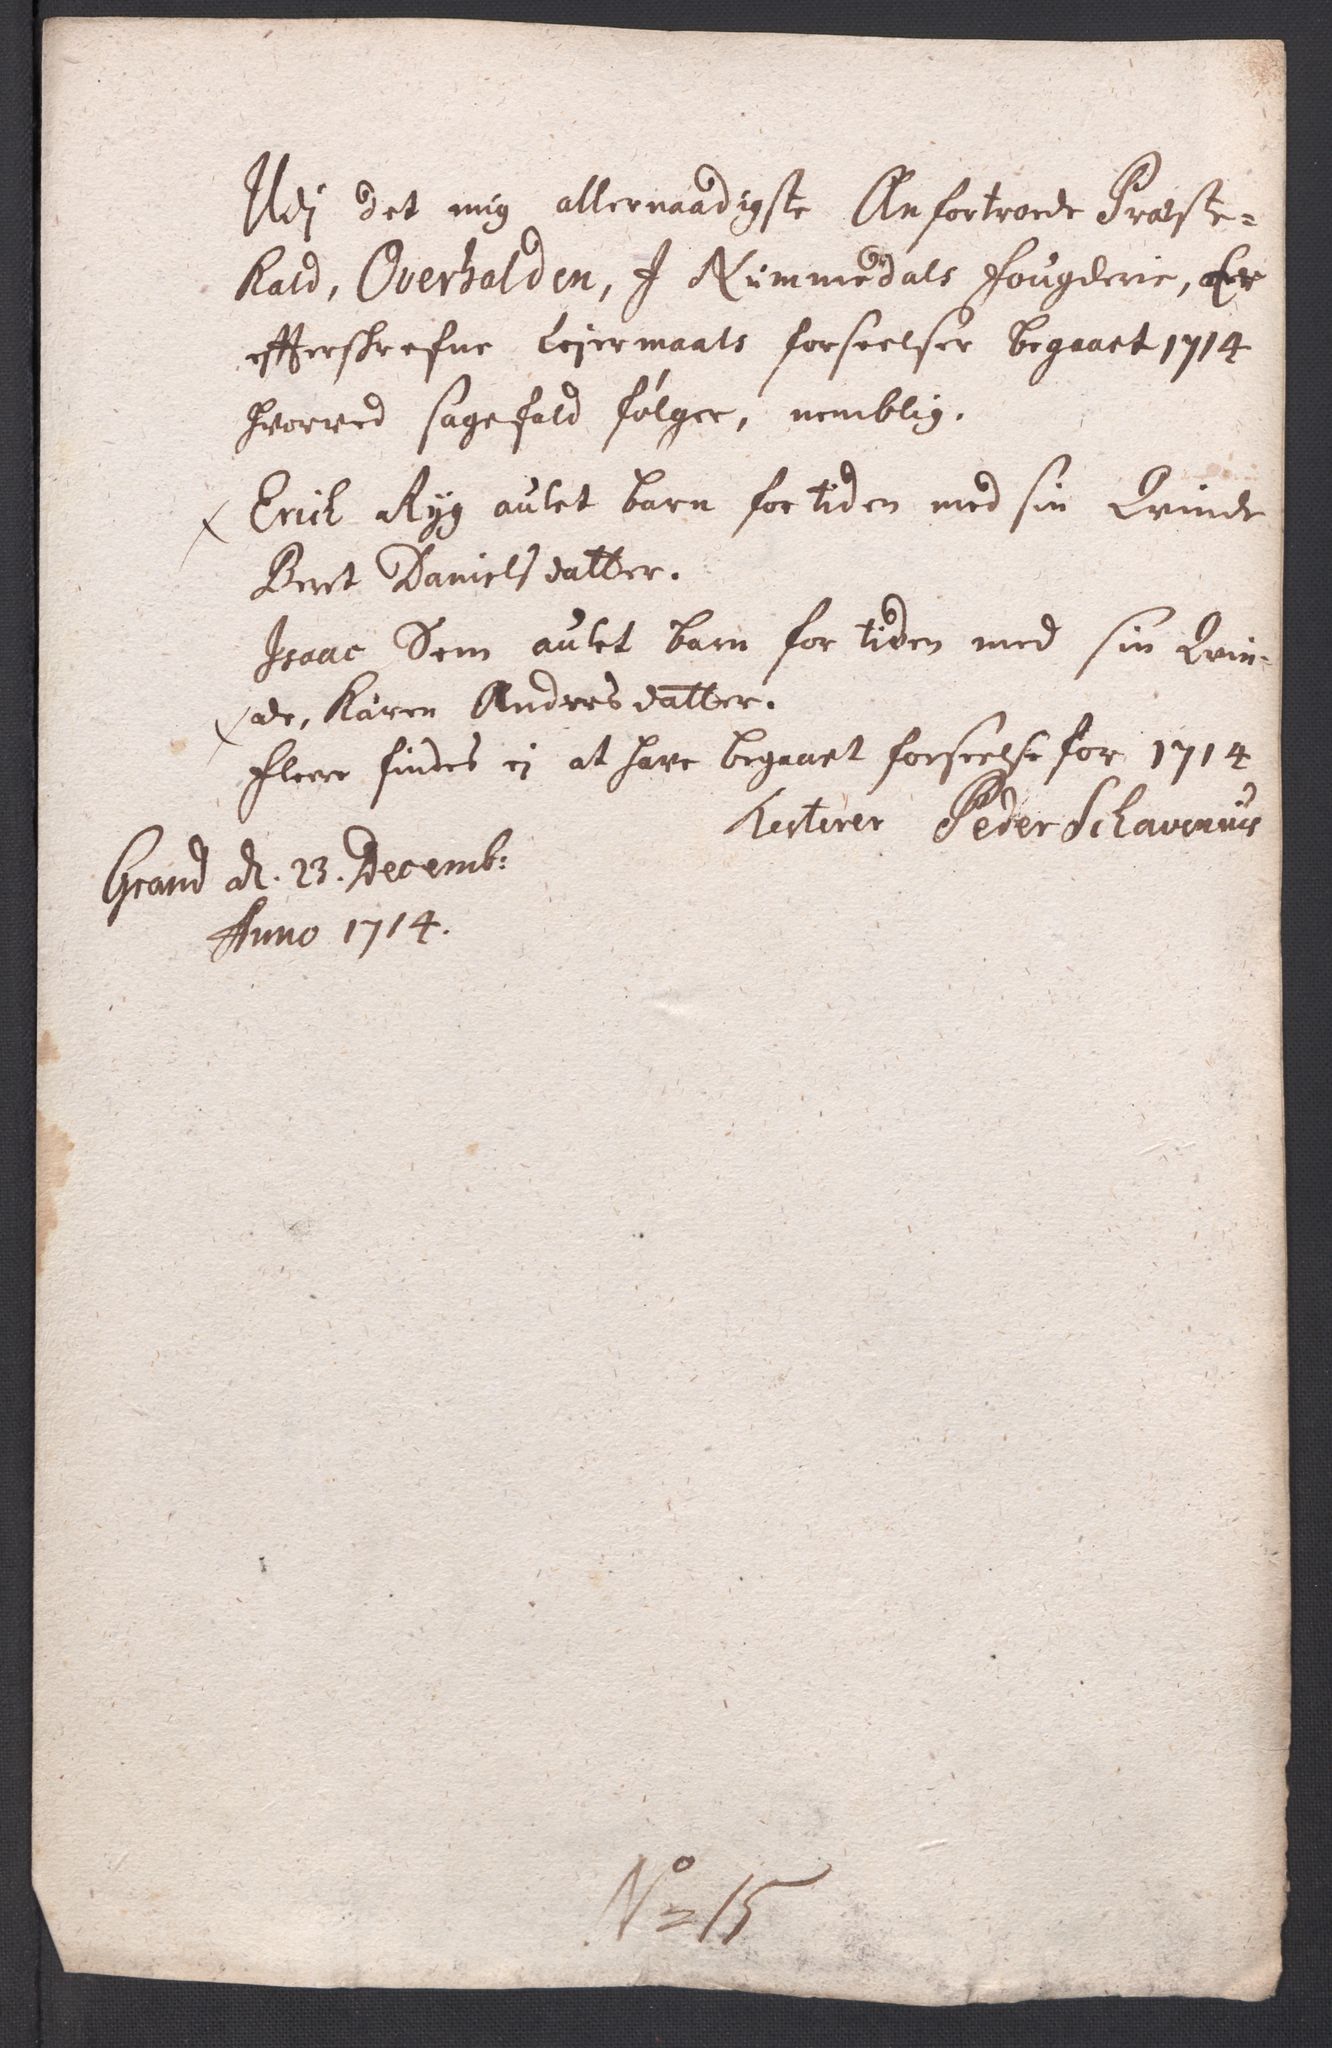 Udj det mig allernaadigste Anfortroede Præste-
kald, Overhalden, J Nummedals fougderie, Er
efterskrefne Lejermaals forseelser begaaet 1714
hvorved sagefald følger, nemblig.
Erich Ryg aulet barn for tiden med sin Qvinde
Beret Danielsdatter.
Isaac Sem aulet barn for tiden med sin Qvin-
de, Karen Andersdatter.
fleere findes ej at have begaaet forseelse for 1714
testerer Peder Schavenius
Grand d. 23. Decemb:
Anno 1714.
No 15